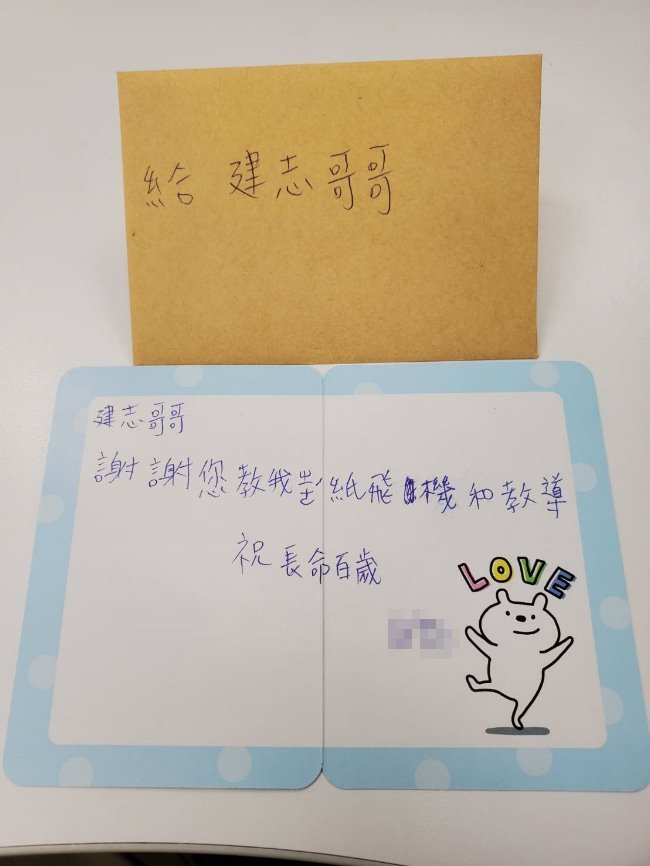 給 建志哥哥
建志哥哥
謝謝您教我 紙飛機和教導
祝長命百歲
LOVE